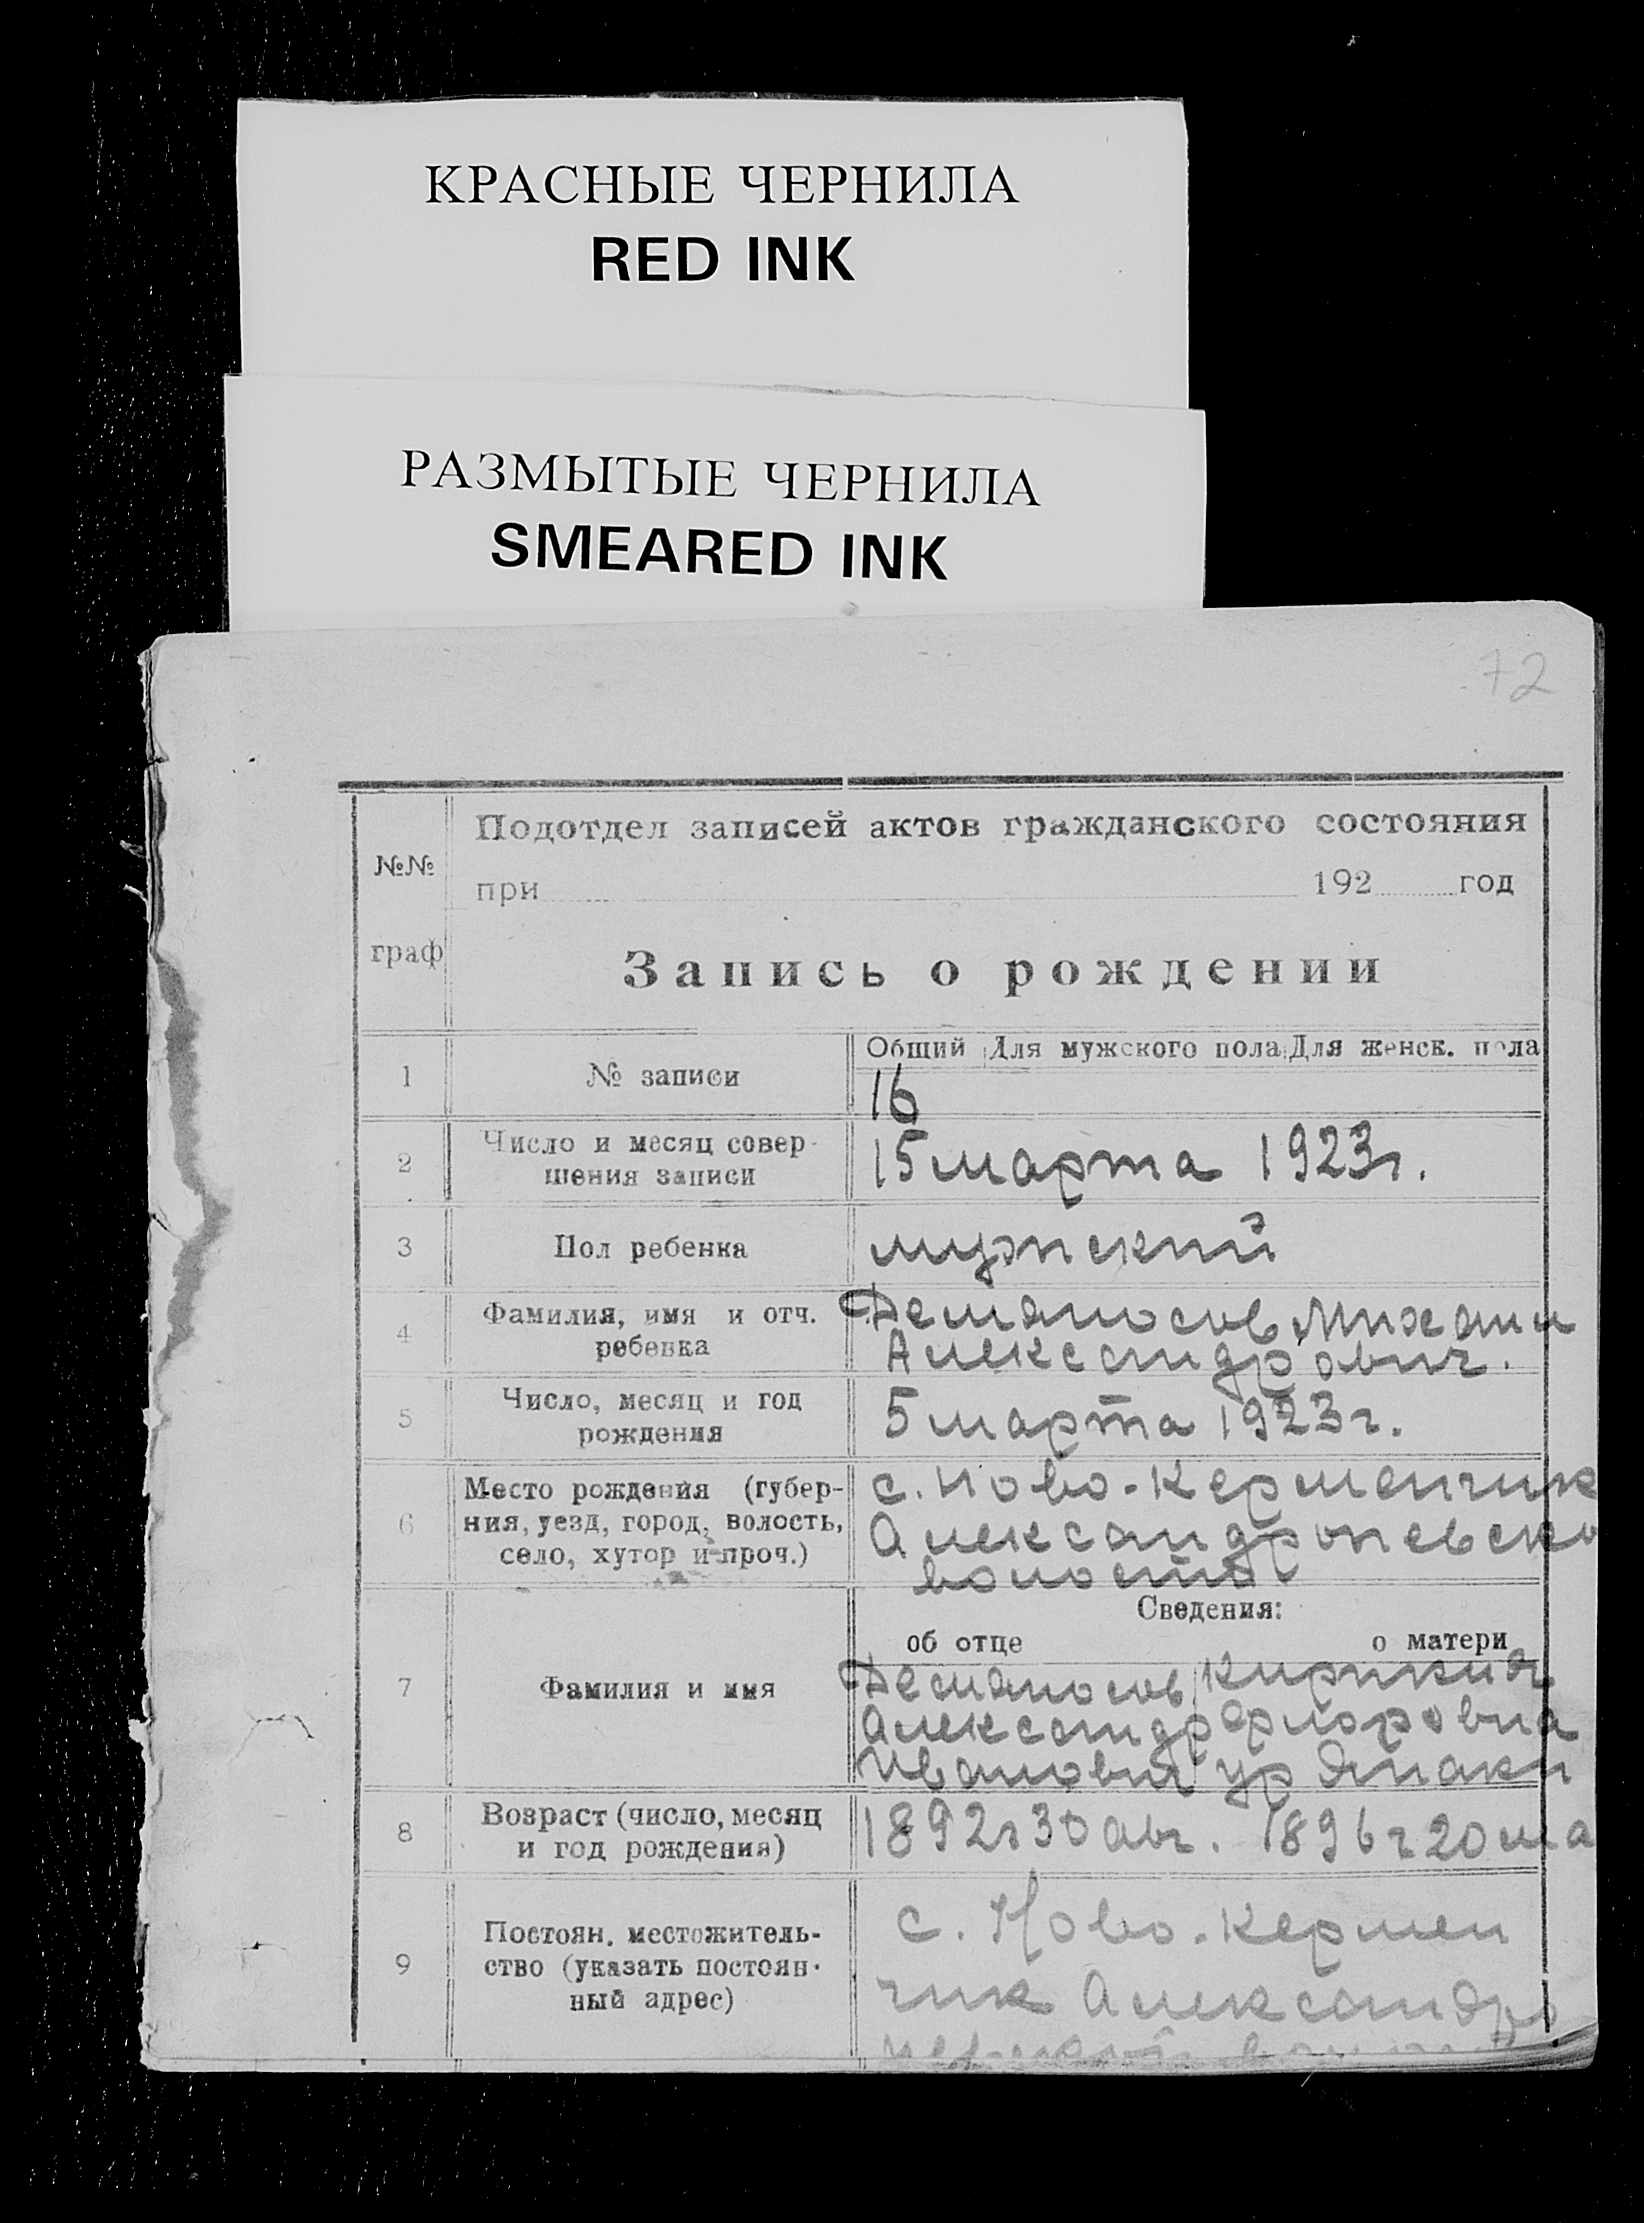 КРАСНЫЕ ЧЕРНИЛА
RED INK
РАЗМЫТЫЕ ЧЕРНИЛА
SMEARED INK
72
№№
граф
Подотдел записей актов гражданского состояния
при 192 год
Запись о рождении
1 № записи
Общий Для мужского пола Для женск. пола
16
2 Число и месяц совер-
шения записи
15 марта 1923г.
3 Пол ребенка
мужский
4 Фамилия, имя и отч.
ребенка
Михаил
Александрович.
5 Число, месяц и год
рождения
5 марта 1923г.
6 Место рождения (губер-
ния, уезд, город, волость,
село, хутор и проч.)
с. Ново-Керменчик
Александроневско
волости
Сведения:
об отце о матери
7 Фамилия и имя
Александр
Иванович ур
8 Возраст (число, месяц
и год рождения)
1892г 30 авг. 1896г 20 ма
9 Постоян. местожитель-
ство (указать постоян-
ный адрес)
с. Ново-Кермен
чик Александро